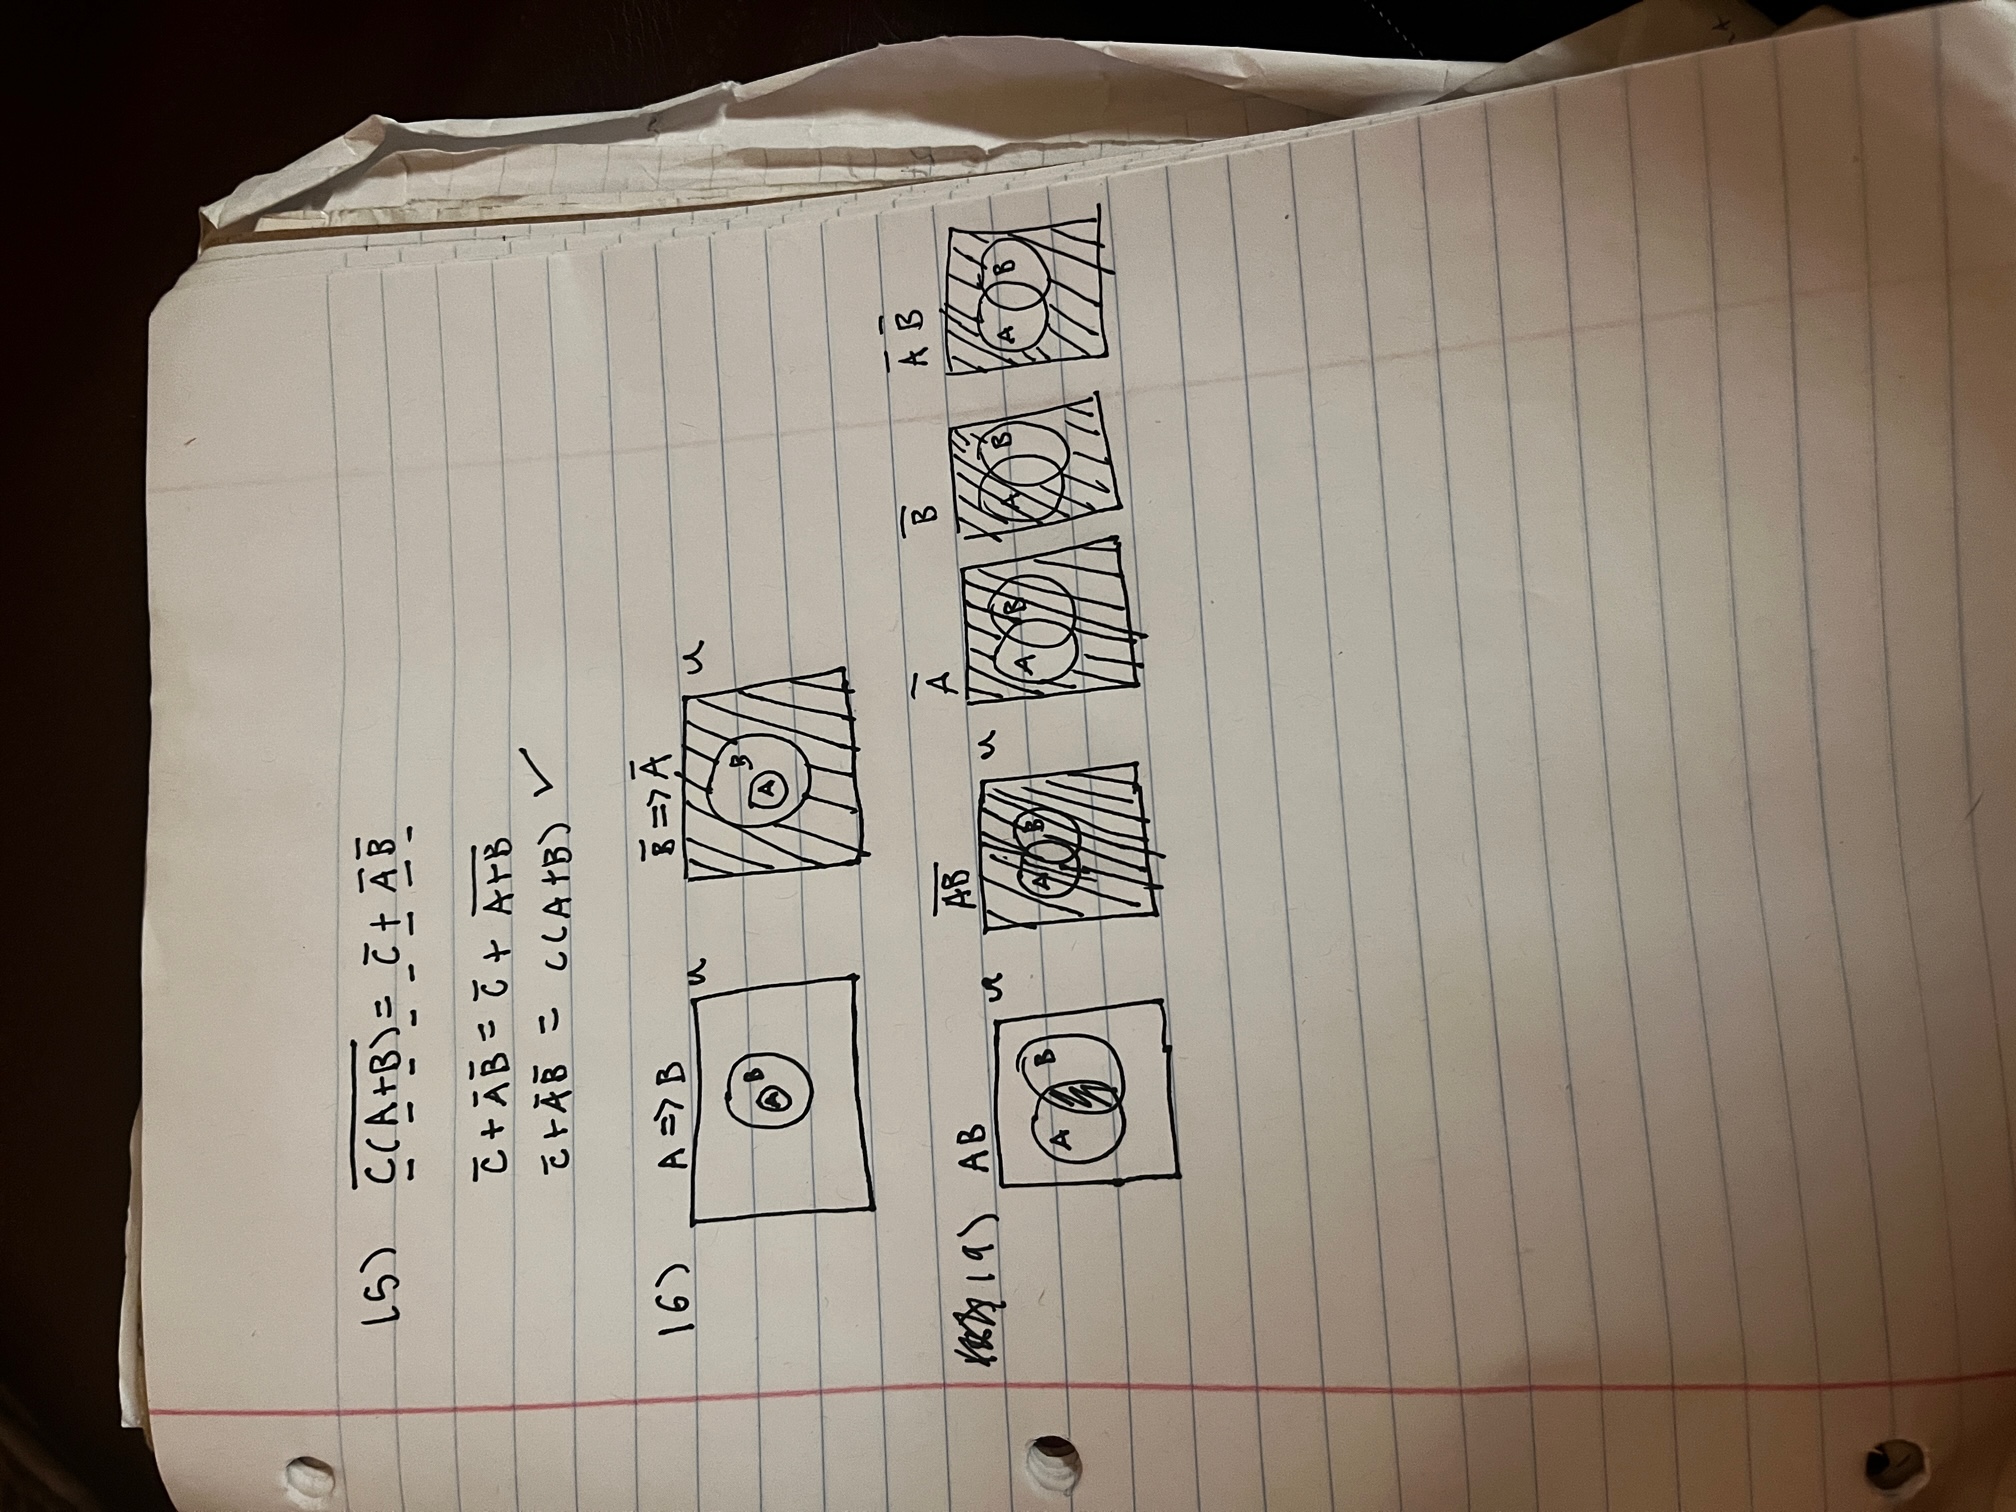 15) C̅(̅A̅+̅B̅)̅ = C̅ + A̅ B̅
C̅ + A̅ B̅ = C̅ + A̅+̅B̅
C̅ + A̅ B̅ = C(A+B) ✓
16) A => B B̅ => A̅
u u
A B A B
19) AB A̅B̅ A̅ B̅ A̅ B̅
u u
A B A B A B A B A B